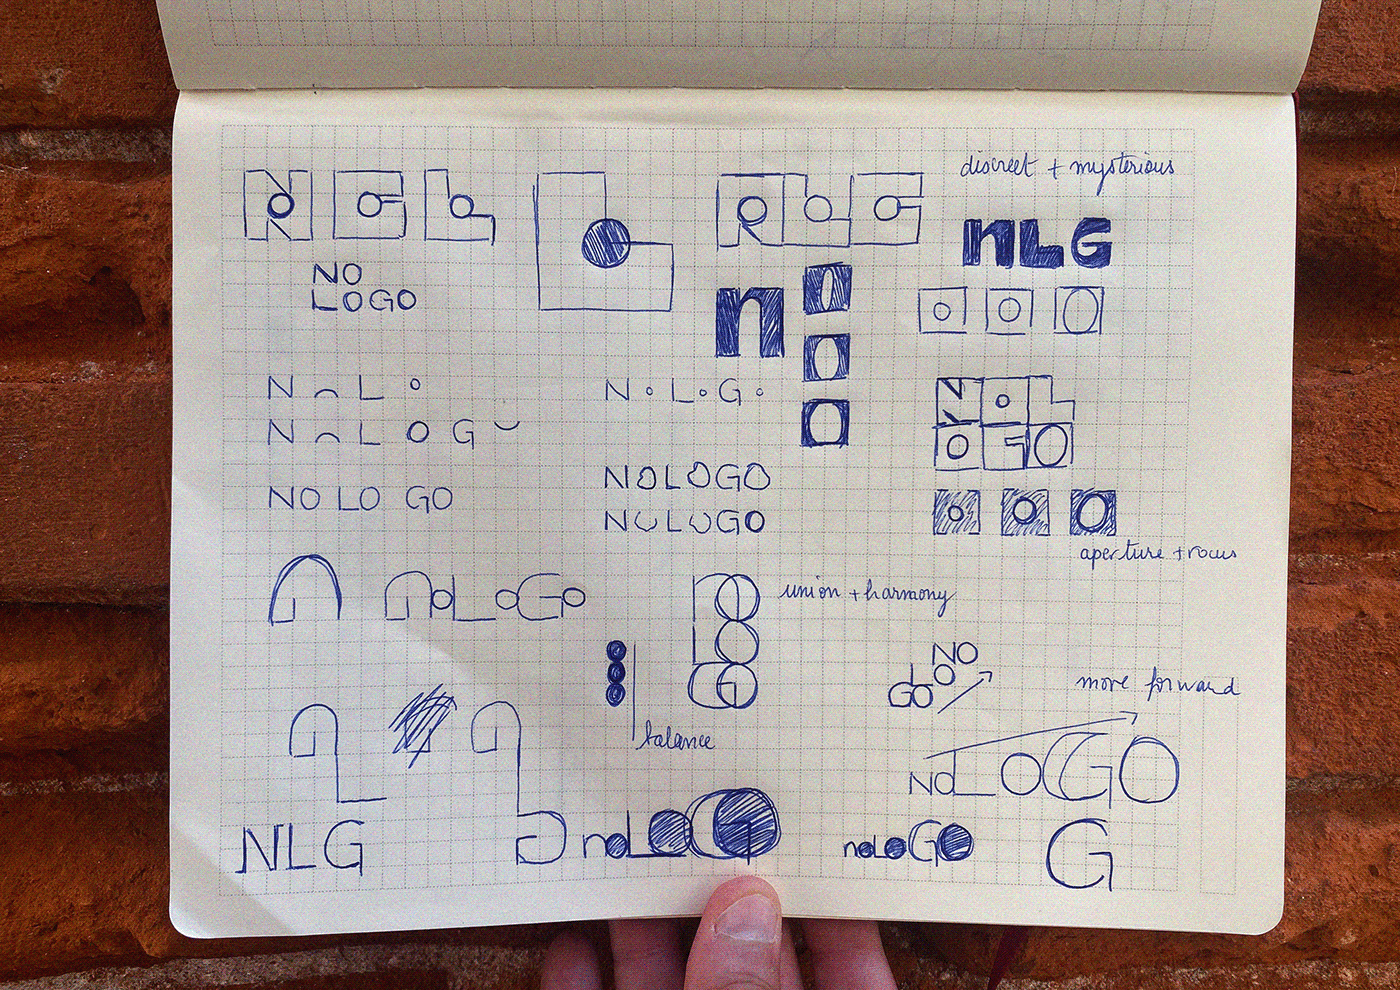 discreet + mysterious
nLG
NO
LOGO
n
N L
N L O G
N o L o G o
NOLOGO
NOLOGO
NOLOGO
NOLO GO
aperture + focus
NOLOGO
NO
LO
GO
union + harmony
balance
NO
LO
GO
more forward
NOLOGO
NLG
noLOGO
noLoGO
G